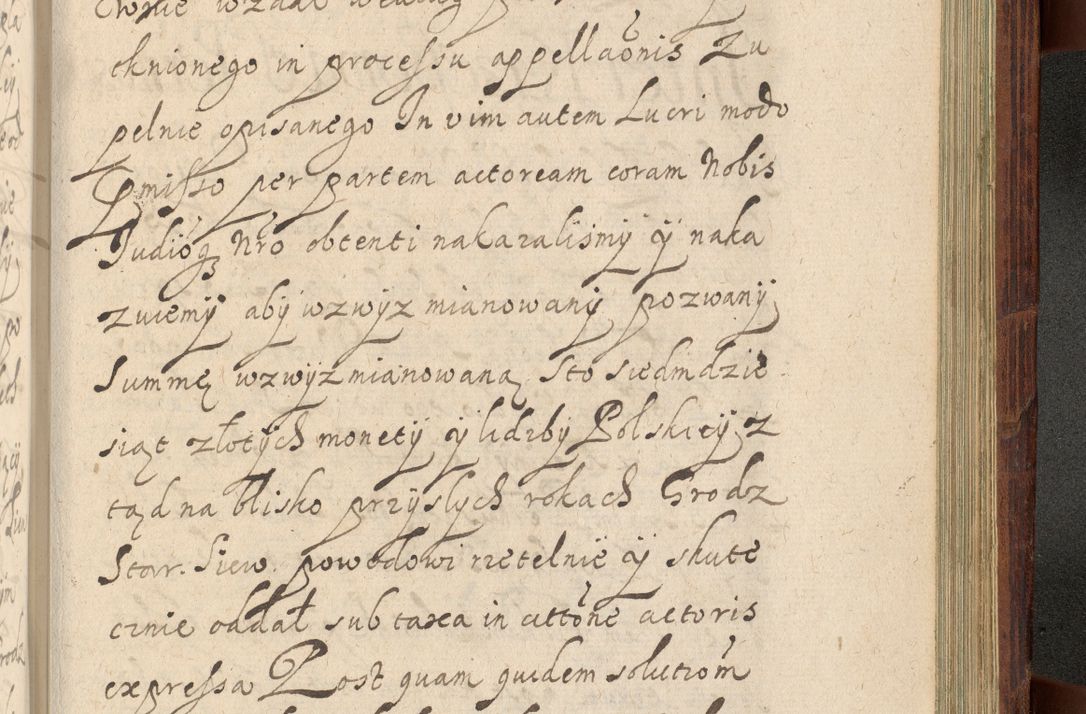 cknionego in processu appellaõnis Zu
pelnie opisanego In vim autem Lucri modo
pmisso per partem actoream coram Nobis
Judiōq Nr̃o obtenti nakazalismÿ ÿ naka
zuiemÿ abÿ wzwÿz mianowanÿ pozwanÿ
Summę wzwÿz mianowaną Sto siedmdzie
siąt złotÿch monetÿ ÿ lidzbÿ Polskieÿ z
tąd na blisko przÿslÿch rokach Grodz
Star. Siew. powodowi rzetelnie ÿ skute
cznie oddał sub taxa in cittõne actoris
expressa Post quam quidem solutiom